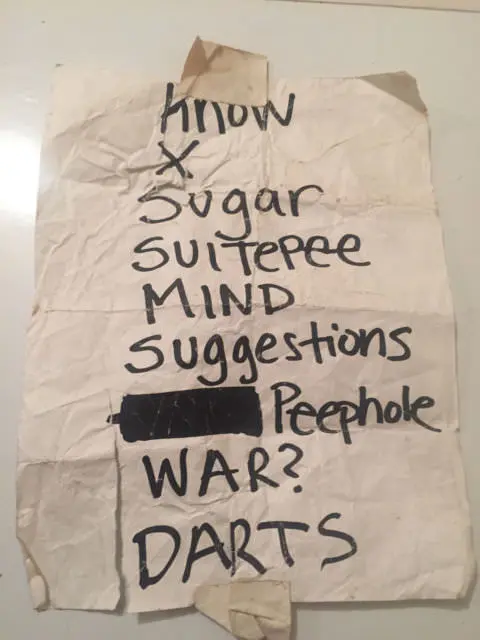 Know
X
Sugar
SUITePee
MIND
Suggestions
Peephole
WAR?
DARTS